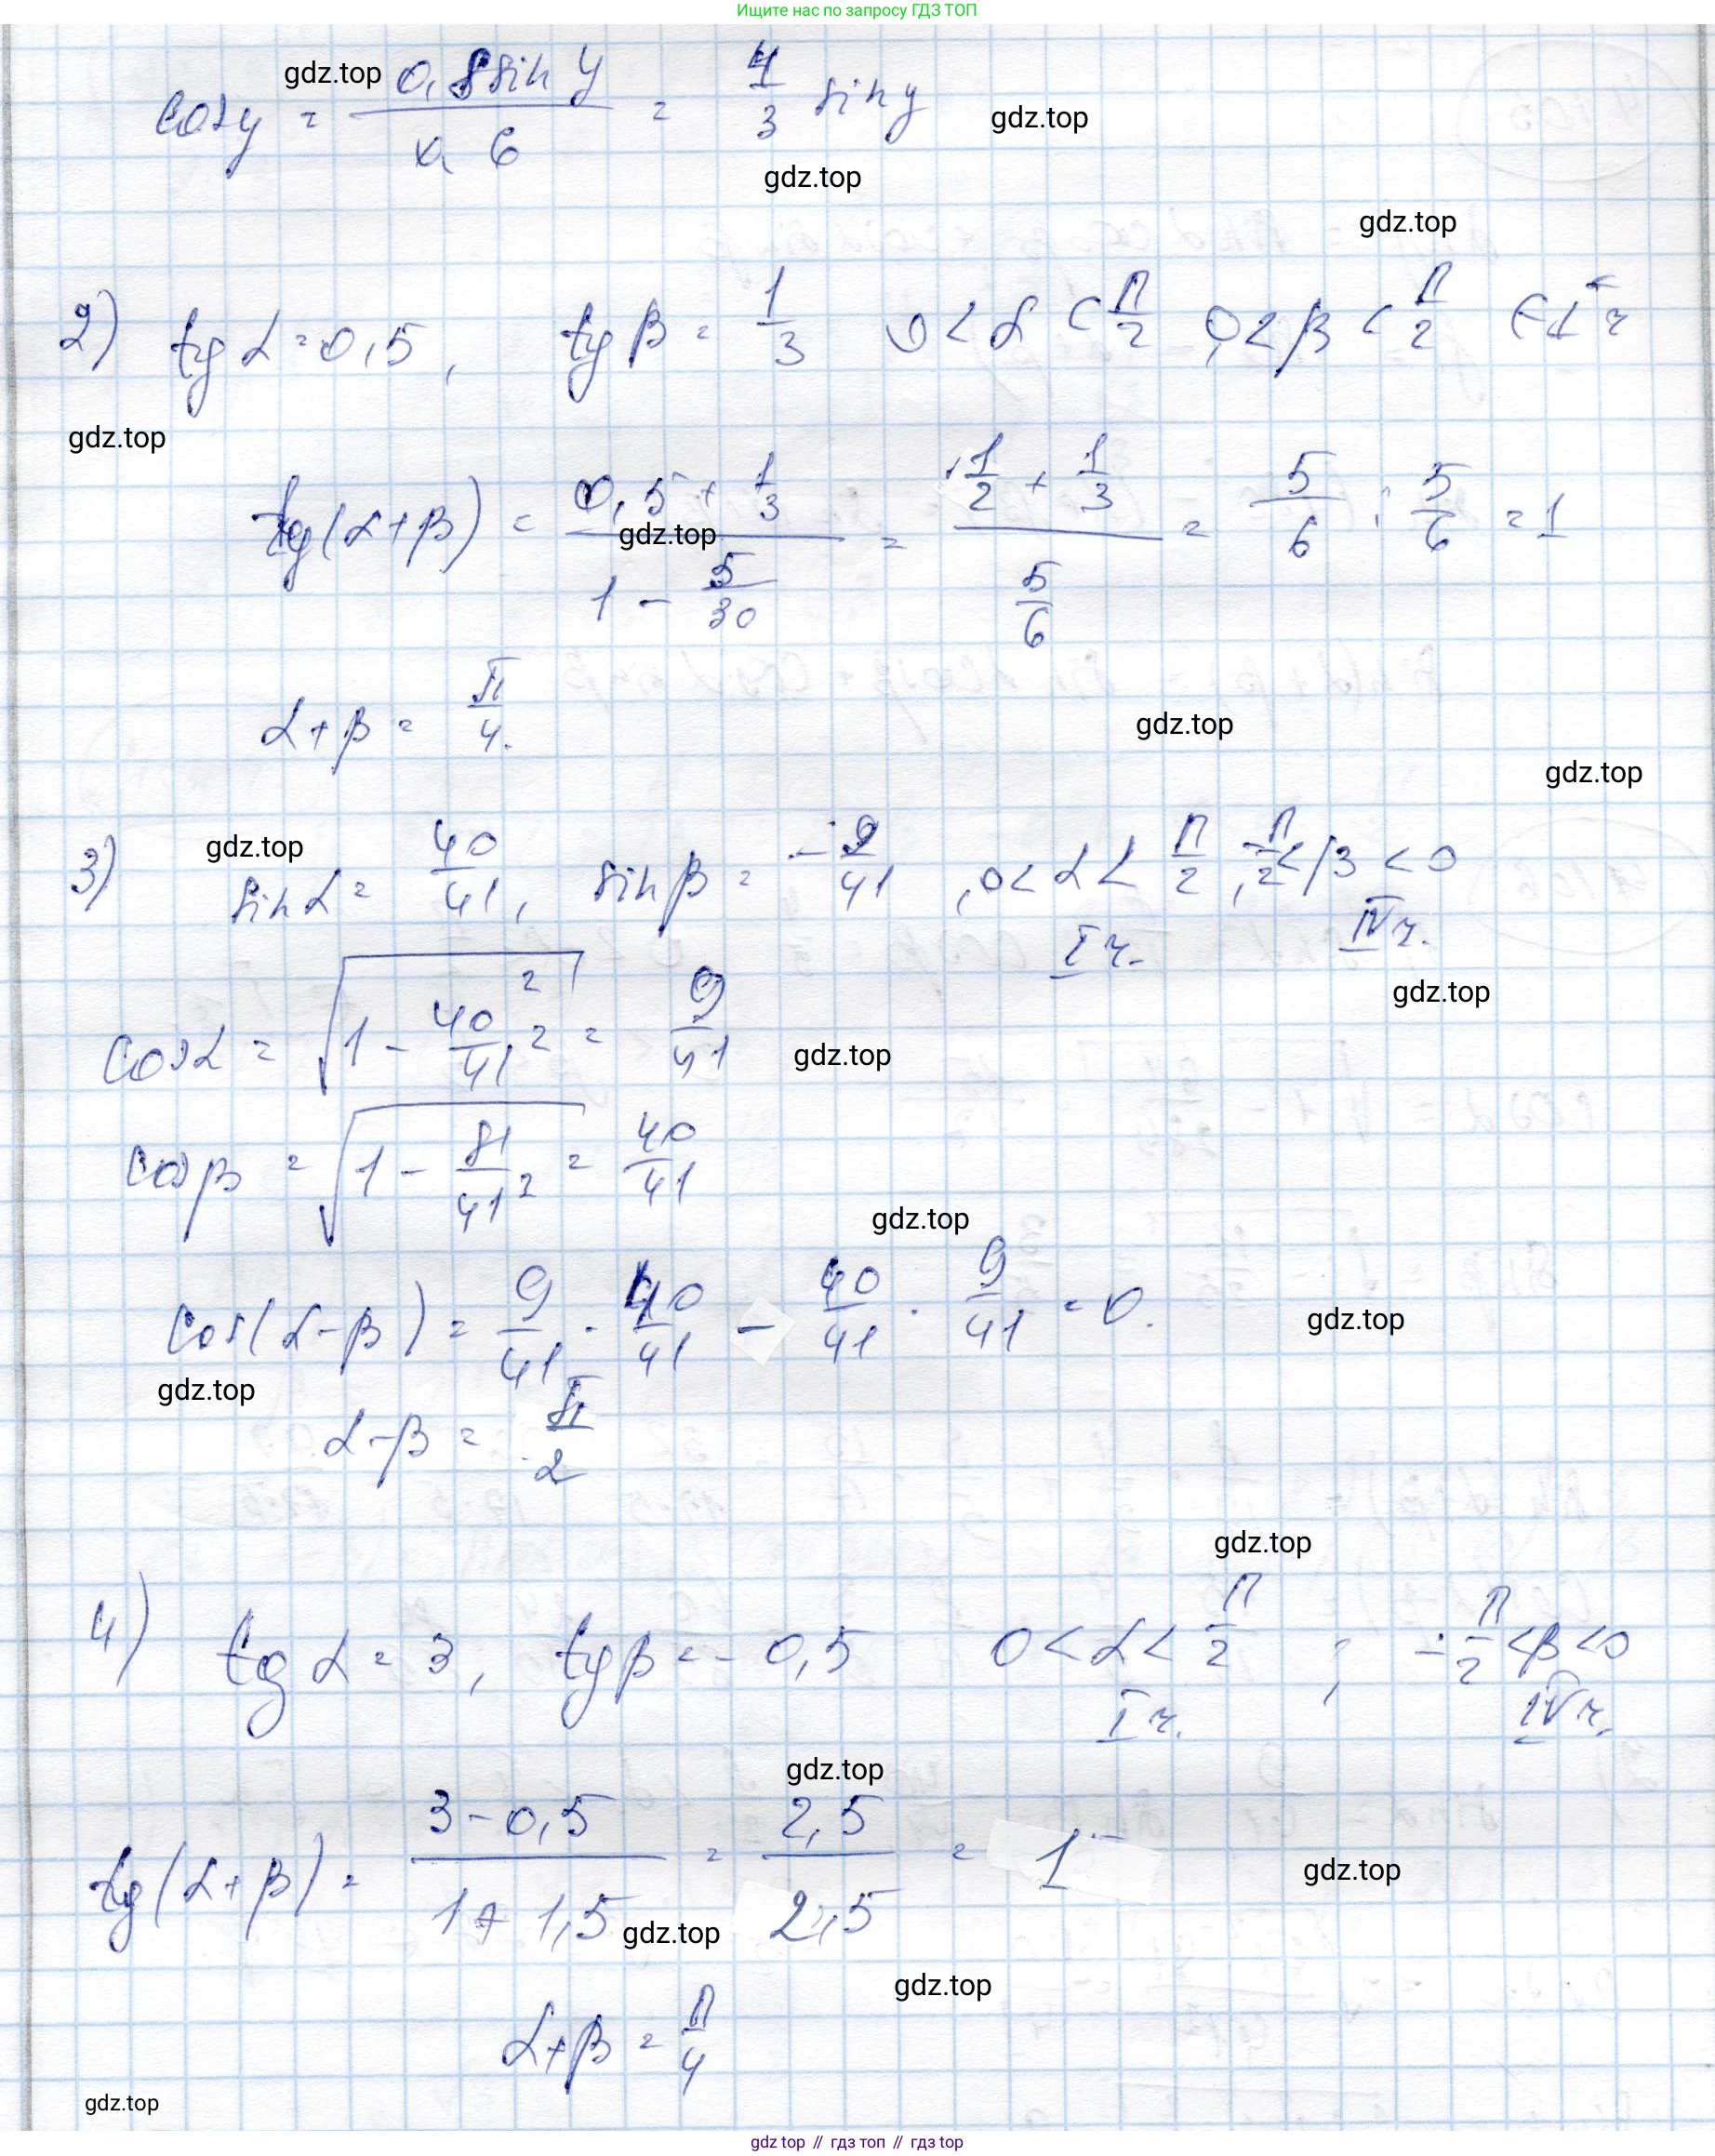 Ищите нас по запросу ГДЗ ТОП
cos y = 0,8 sin y / 0,6 = 4/3 sin y
gdz.top
gdz.top
gdz.top
gdz.top
2) tg α = 0,5, tg β = 1/3 0 < α < π/2, 0 < β < π/2
gdz.top
tg(α+β) = (0,5 + 1/3) / (1 - 5/30) = (1/2 + 1/3) / (5/6) = 5/6 : 5/6 = 1
gdz.top
α+β = π/4.
gdz.top
gdz.top
3) sin α = 40/41, sin β = -9/41, 0 < α < π/2, -π/2 < β < 0
gdz.top
I ч. IV ч.
gdz.top
cos α = √(1 - 40²/41²) = 9/41
gdz.top
cos β = √(1 - 81/41²) = 40/41
gdz.top
cos(α-β) = 9/41 · 40/41 - 40/41 · 9/41 = 0.
gdz.top
gdz.top
α-β = π/2
gdz.top
4) tg α = 3, tg β = -0,5 0 < α < π/2 ; -π/2 < β < 0
I ч. IV ч.
gdz.top
tg(α+β) = (3 - 0,5) / (1 + 1,5) = 2,5 / 2,5 = 1
gdz.top
gdz.top
gdz.top
α+β = π/4
gdz.top
gdz top // гдз топ // гдз top